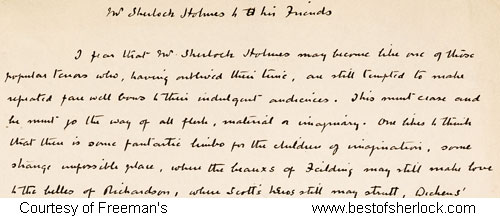 Mr Sherlock Holmes to his Friends
I fear that Mr. Sherlock Holmes may become like one of those
popular tenors who, having outlived their time, are still tempted to make
repeated farewell bows to their indulgent audiences. This must cease and
he must go the way of all flesh, material or imaginary. One likes to think
that there is some fantastic limbo for the children of imagination, some
strange impossible place, where the beaux of Fielding may still make love
to the belles of Richardson, where Scott's heroes still may strutt, Dickens'
Courtesy of Freeman's
www.bestofsherlock.com